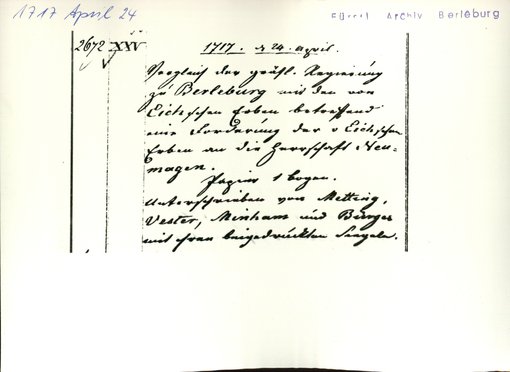 1717 April 24
Fürstl Archiv Berleburg
2672 XXV
1717. d 24. April.
Vergleich der gräfl. Regierung
zu Berleburg mit den von
Eichschen Erben betreffend
eine Forderung der v Eichschen
Erben an die Herrschaft Neu-
magen.
Papier 1 bogen.
Unterschrieben von Metting,
Vester, Minham und Bürger
mit ihren beigedruckten Siegeln.